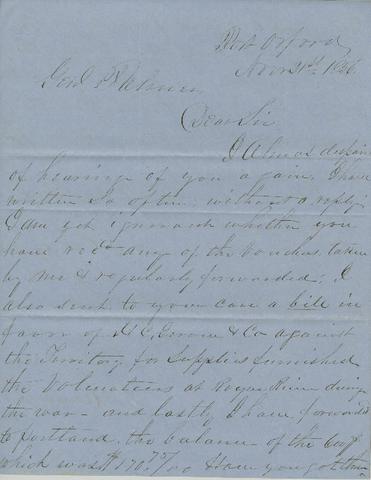 Port Orford
Nov 21st 1856
Genl Palmer
Dear Sir
I Almost despair
of hearing of you again. I have
written so often without a reply.
I am yet ignorant whether you
have recd any of the Vouchers taken
by me & regularly forwarded; I
also sent to your care a bill in
favor of & Co against
the Territory for Supplies furnished
the Volunteers at Rogue River during
the war – and lastly I have forwarded
to Portland the balance of the
which was $170.75/00 Have you got them